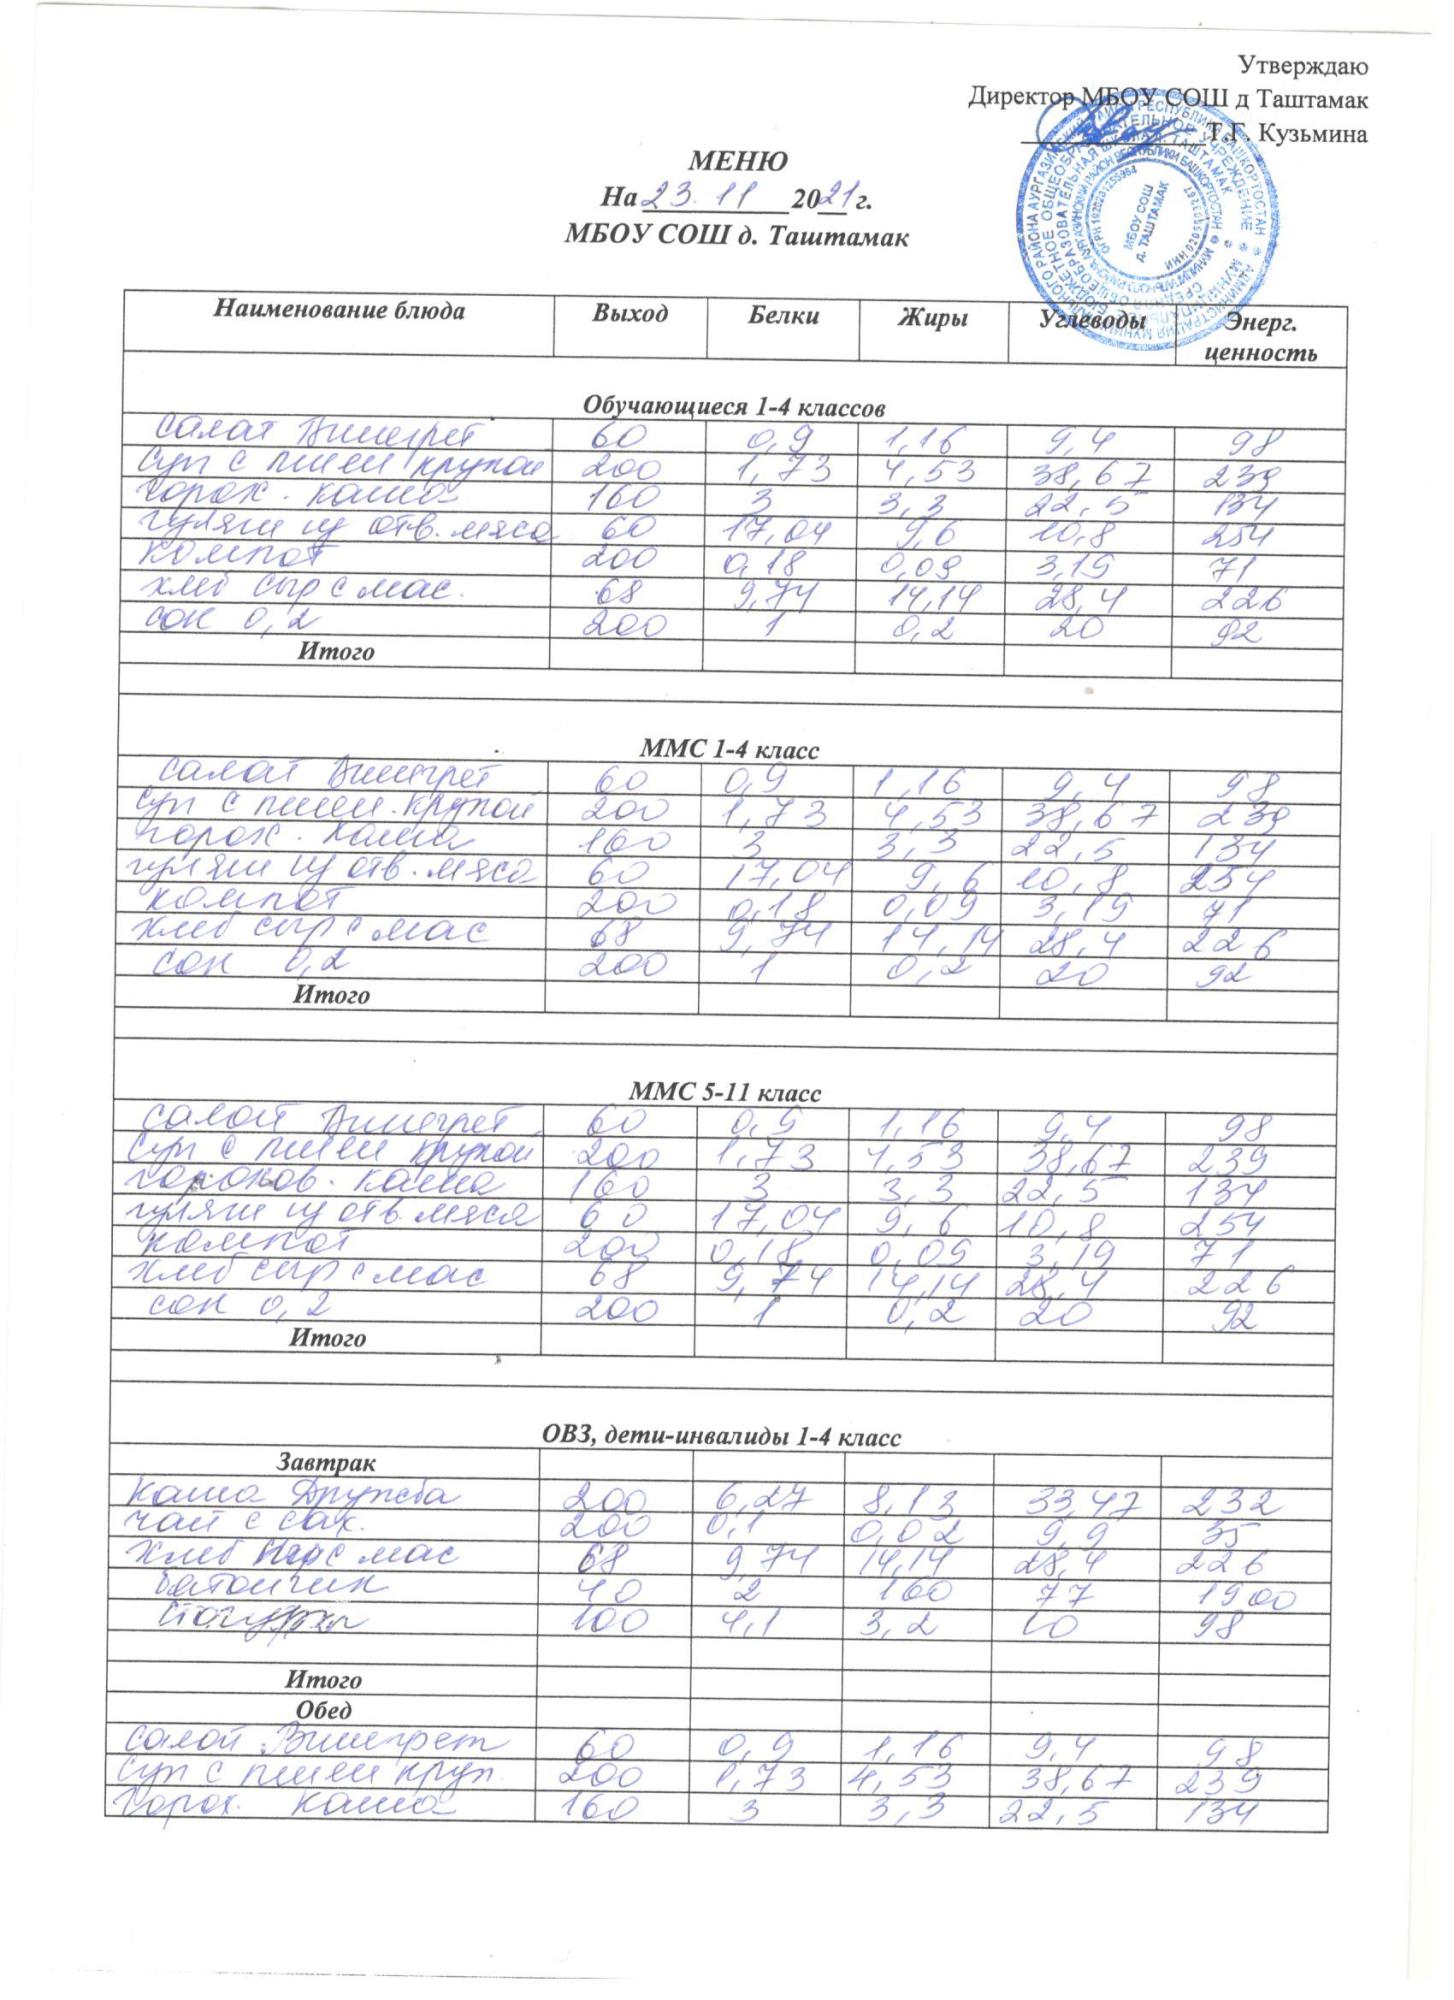 Утверждаю
Директор МБОУ СОШ д Таштамак
Т.Г. Кузьмина
МЕНЮ
На 23.11 2021 г.
МБОУ СОШ д. Таштамак
Наименование блюда Выход Белки Жиры Углеводы Энерг. ценность
Обучающиеся 1-4 классов
салат Винегрет 60 0,9 1,16 9,4 98
Суп с пшен крупой 200 1,73 4,53 38,67 239
горох. каша 160 3 3,3 22,5 134
гуляш из отв. мяса 60 17,04 9,6 10,8 254
компот 200 0,18 0,09 3,19 71
хлеб сыр с мас. 68 9,74 14,14 28,4 226
сок 0,2 200 1 0,2 20 92
Итого
ММС 1-4 класс
салат Винегрет 60 0,9 1,16 9,4 98
Суп с пшен. крупой 200 1,73 4,53 38,67 239
горох. каша 160 3 3,3 22,5 134
гуляш из отв. мяса 60 17,04 9,6 10,8 254
компот 200 0,18 0,09 3,19 71
хлеб сыр с мас 68 9,74 14,14 28,4 226
сок 0,2 200 1 0,2 20 92
Итого
ММС 5-11 класс
салат Винегрет 60 0,9 1,16 9,4 98
Суп с пшен крупой 200 1,73 4,53 38,67 239
горохов. каша 160 3 3,3 22,5 134
гуляш из отв. мяса 60 17,04 9,6 10,8 254
компот 200 0,18 0,09 3,19 71
хлеб сыр с мас 68 9,74 14,14 28,4 226
сок 0,2 200 1 0,2 20 92
Итого
ОВЗ, дети-инвалиды 1-4 класс
Завтрак
Каша Дружба 200 6,27 8,13 33,47 232
чай с сах. 200 0,1 0,02 9,9 35
хлеб сыр с мас 68 9,74 14,14 28,4 226
батончик 40 2 160 77 1900
100 4,1 3,2 10 98
Итого
Обед
салат Винегрет 60 0,9 1,16 9,4 98
Суп с пшен круп. 200 1,73 4,53 38,67 239
Горох. каша 160 3 3,3 22,5 134
МБОУ СОШ
д. ТАШТАМАК